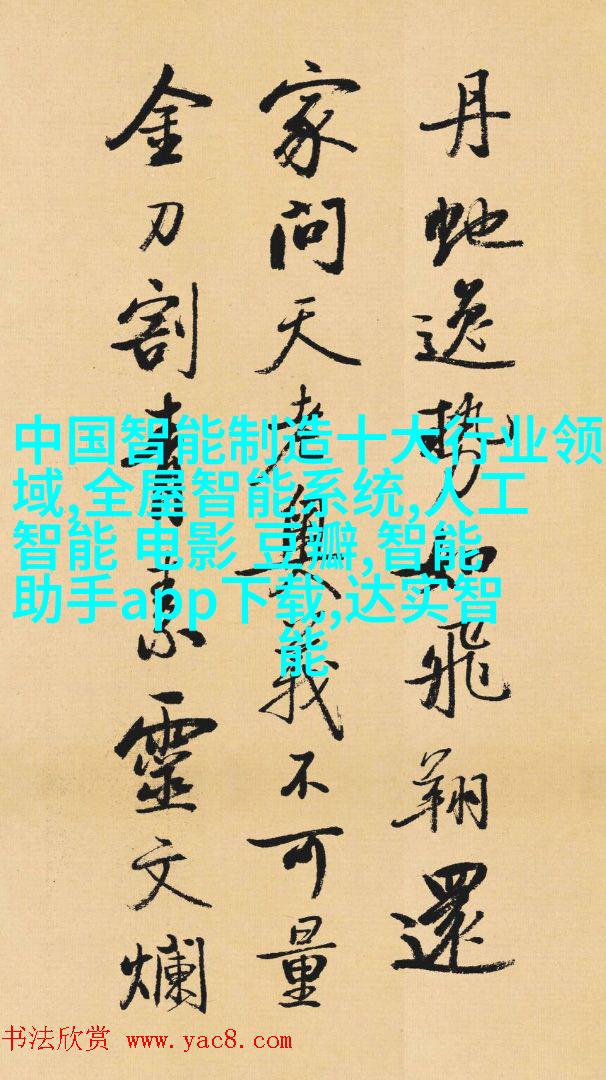 丹虵逸勢如飛翔還
家問天老奥義不可量
金刀割青素靈文爛
中国智能制造十大行业领
域,全屋智能系统,人工
智能 电影 豆瓣,智能
助手app下载,达实智
能
书法欣赏 www.yac8.com